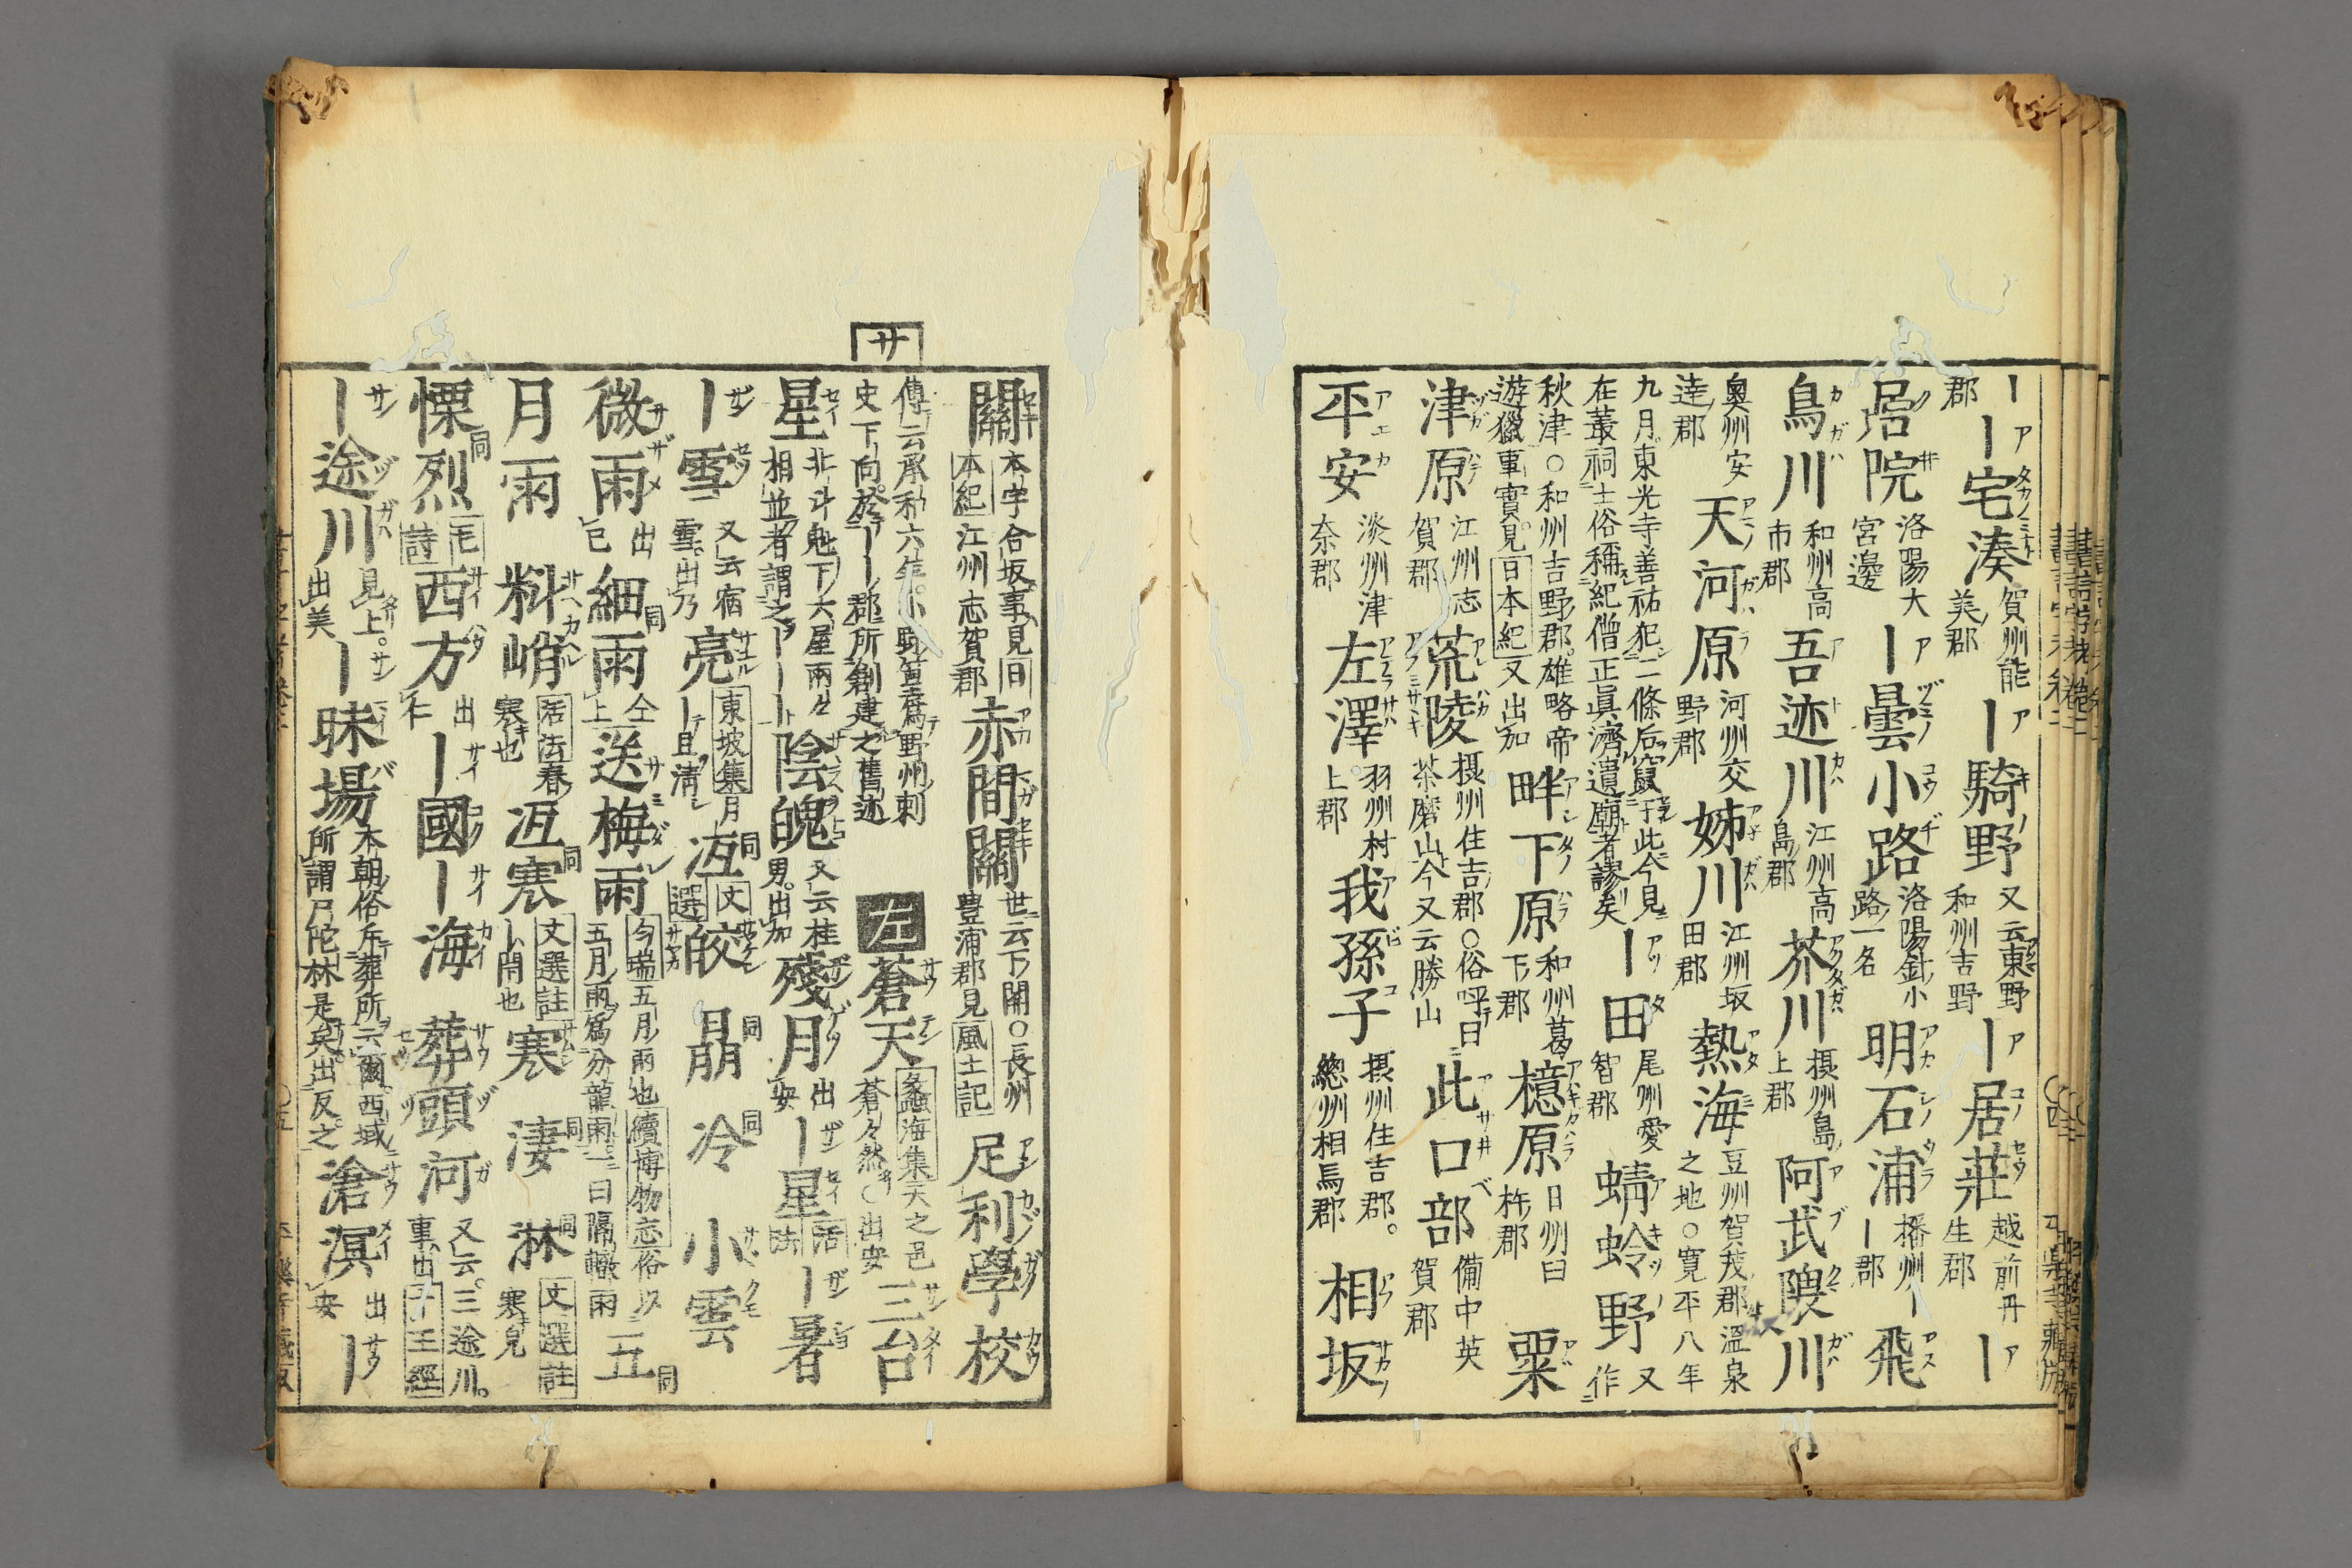 ｜｜宅湊賀州能美郡｜騎野又云東野和州吉野郡｜居莊越前丹生郡｜
郡居院洛陽大宮邊｜曇小路洛陽針小路一名明石浦播州｜郡｜飛
鳥川和州高市郡吾迹川江州高島郡芥川摂州島上郡阿武隈川
奧州安達郡天河原河州交野郡姊川江州坂田郡熱海豆州賀茂郡温泉之地○寛平八年
九月東光寺善祐犯二條后竄于此今見在叢祠土俗稱紀僧正眞濟遺廟者謬矣｜田尾州愛智郡蜻蛉野又作
秋津○和州吉野郡雄略帝遊獵事實見日本紀又出加畔下原和州葛下郡檍原日州臼杵郡粟
津原江州志賀郡荒陵摂州住吉郡○俗呼曰茶磨山今又云勝山此口部備中英賀郡
平安淡州津奈郡左澤羽州村上郡我孫子摂州住吉郡。總州相馬郡相坂
關本字合坂事見日本紀江州志賀郡赤間關世云下關○長州豊浦郡見風土記足利學校
サ
傳云承和六年小野篁爲野州刺史下向於｜｜郡所創建之舊迹左蒼天蠡海集天之邑蒼々然○出安三台
星北斗魁下六星兩々相並者謂之｜｜｜陰魄又云桂男出加殘月出安｜星活法｜暑
｜雪又云宿雪出乃亮東坡集月｜且淸冱同文選皎晶同冷同小雲
微雨出巳細雨同仝上送梅雨今瑞五月雨也續博物志俗以五月雨爲分龍雨一曰隔轍雨五同
月雨料峭活法春寒也冱寒同文選註｜閉也寒凄同淋同文選註寒皃
慄烈同毛詩西方出仁｜國｜海葬頭河又云三途川。事出十王經
｜途川見上。出美｜昧場本朝俗斥葬所云爾西域所謂尸陀林是矣出反之滄溟出安｜